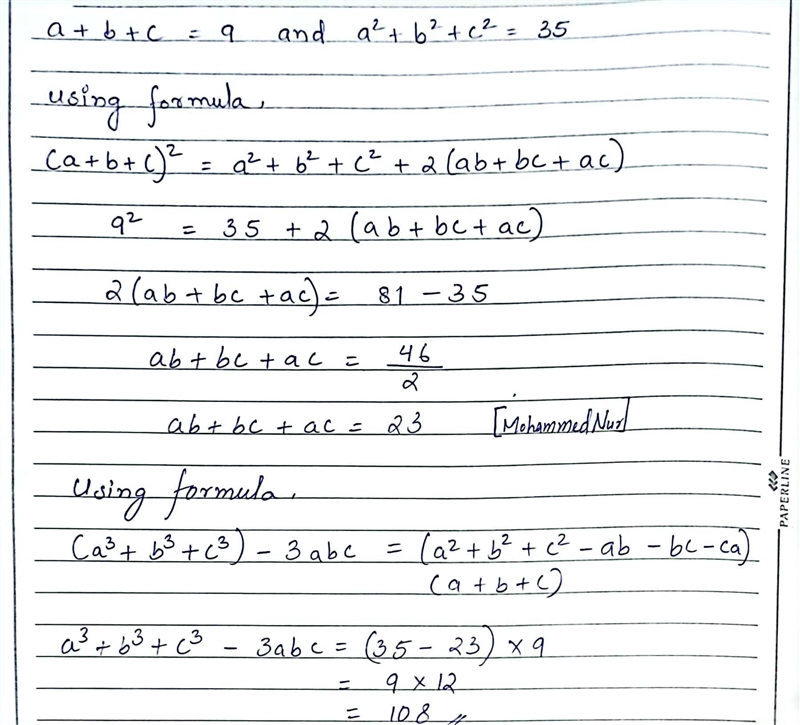 a + b + c = 9 and a² + b² + c² = 35
using formula,
(a+b+c)² = a² + b² + c² + 2(ab + bc + ac)
9² = 35 + 2 (ab + bc + ac)
2(ab + bc + ac) = 81 - 35
ab + bc + ac = 46/2
ab + bc + ac = 23 [Mohammed Nur]
Using formula,
(a³ + b³ + c³) - 3abc = (a² + b² + c² - ab - bc - ca)
(a + b + c)
a³ + b³ + c³ - 3abc = (35 - 23) × 9
= 9 × 12
= 108 //
PAPERLINE